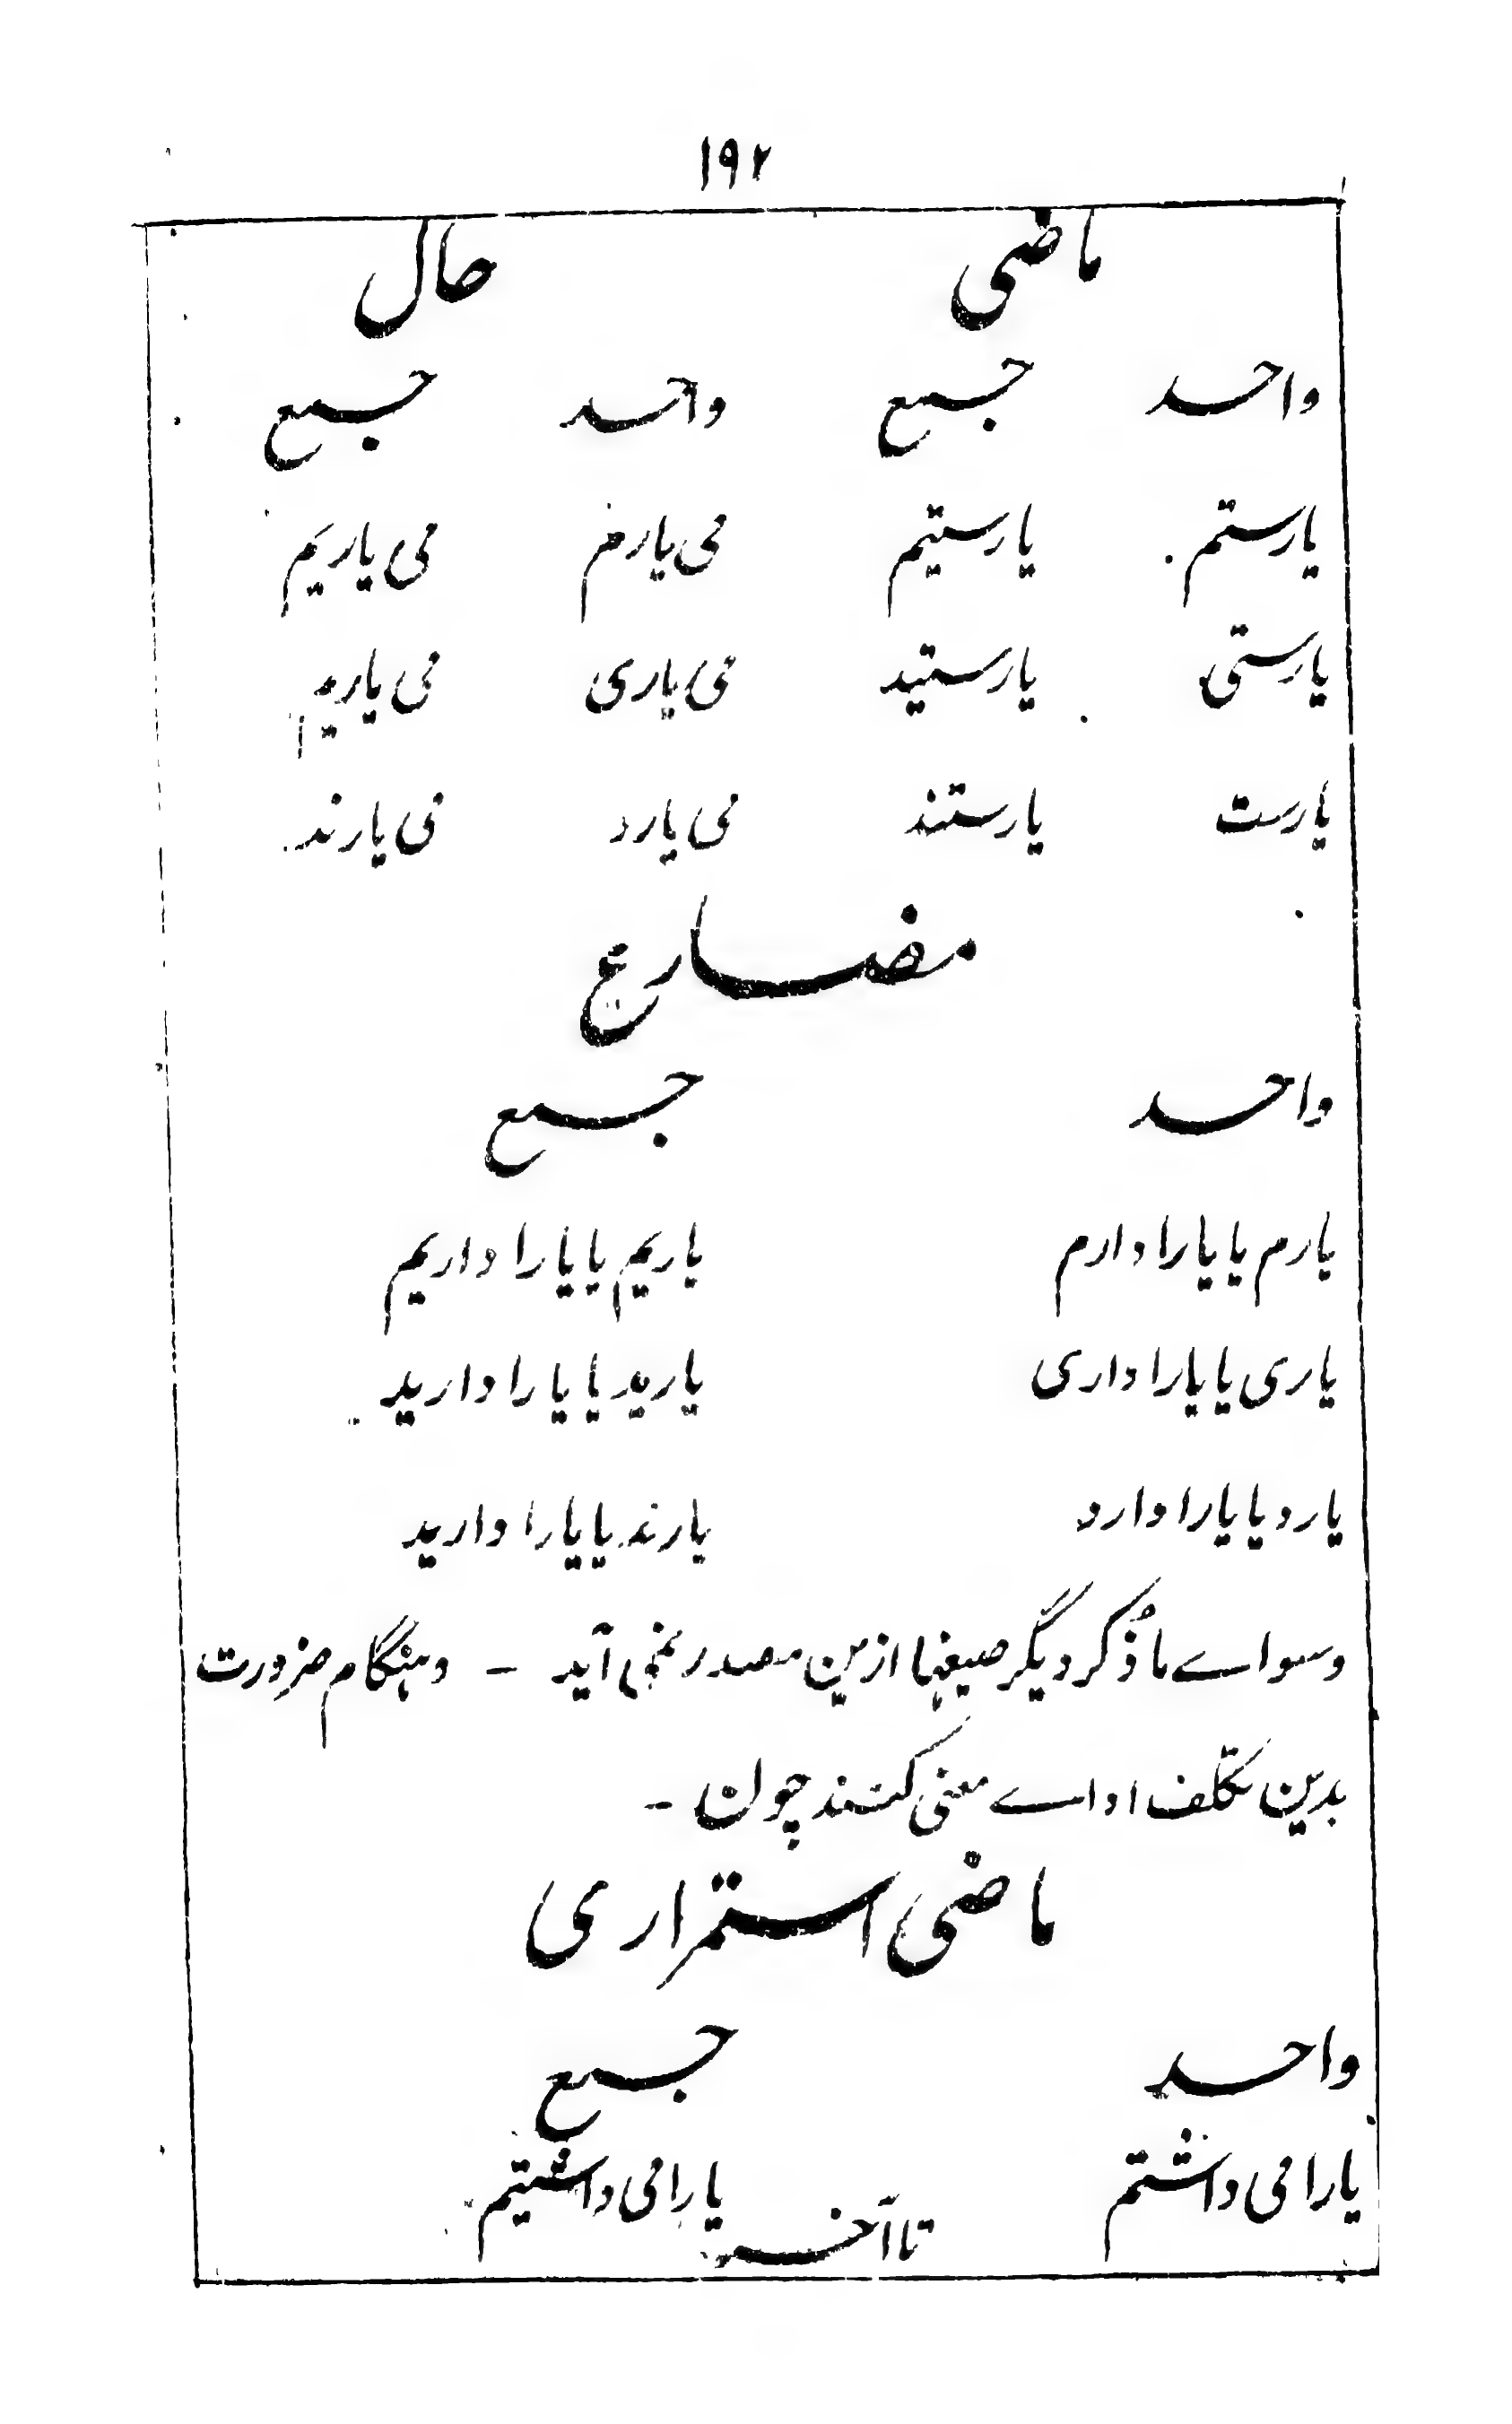 ۱۹۲
ماضی حال
واحد جمع واحد جمع
یارستم یارستیم می یارم می یاریم
یارستی یارستید می یاری می یارید
یارست یارستند می یارد می یارند
مضارع
واحد جمع
یارم یا یارا دارم یاریم یا یارا داریم
یاری یا یارا داری یارید یا یارا دارید
یارد یا یارا دارد یارند یا یارا دارید
وسواے ما ذُکر دیگر صیغہا ازین مصدر نمی آید - و ہنگام ضرورت
بدین تکلف اداے معنی کنند چون -
ماضی استمراری
واحد جمع
یارا می داشتم یارا می داشتیم
تا آخر